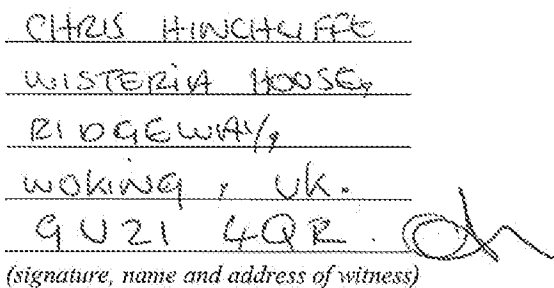 CHRIS HINCHLIFFE
WISTERIA HOUSE,
RIDGEWAY,
WOKING, UK.
GU21 4QR.
(signature, name and address of witness)